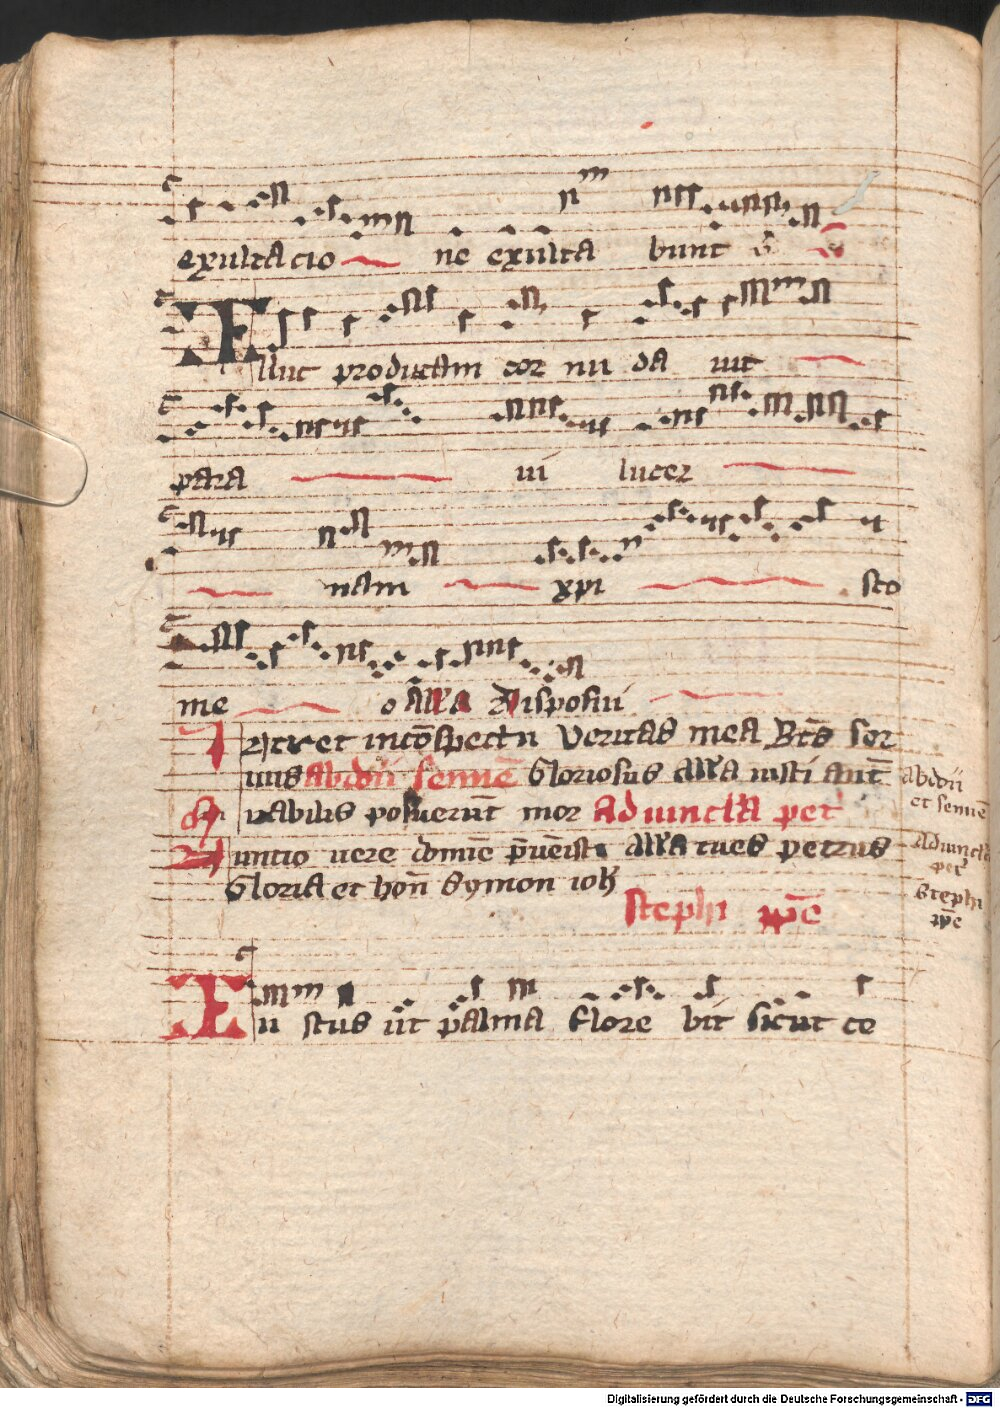 exultacio ne exulta bunt
Illuc producam cor nu da uit
para ui lucer
nam xpi sto
me o alla Disposui
Intret in cōspectu Veritas mea Bt̄s ser
uus abdon sennē Gloriosus alla iusti aut̄
Mirabilis posuerūt mor ad uincl̄a pet
Nuntio uere domīe alla tues petrus
Gloria et hon̄ symon ioh
abdon
et sennē
Ad uincl̄a
pet
Stephi
pp̄e
Stephi pp̄e
Iu stus ut palma flore bit sicut ce
Digitalisierung gefördert durch die Deutsche Forschungsgemeinschaft - DFG